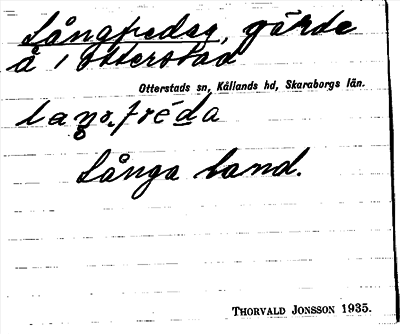 Långfredag, gärde
å i Otterstad
Otterstads sn, Kållands hd, Skaraborgs län.
Långa band.
THORVALD JONSSON 1935.